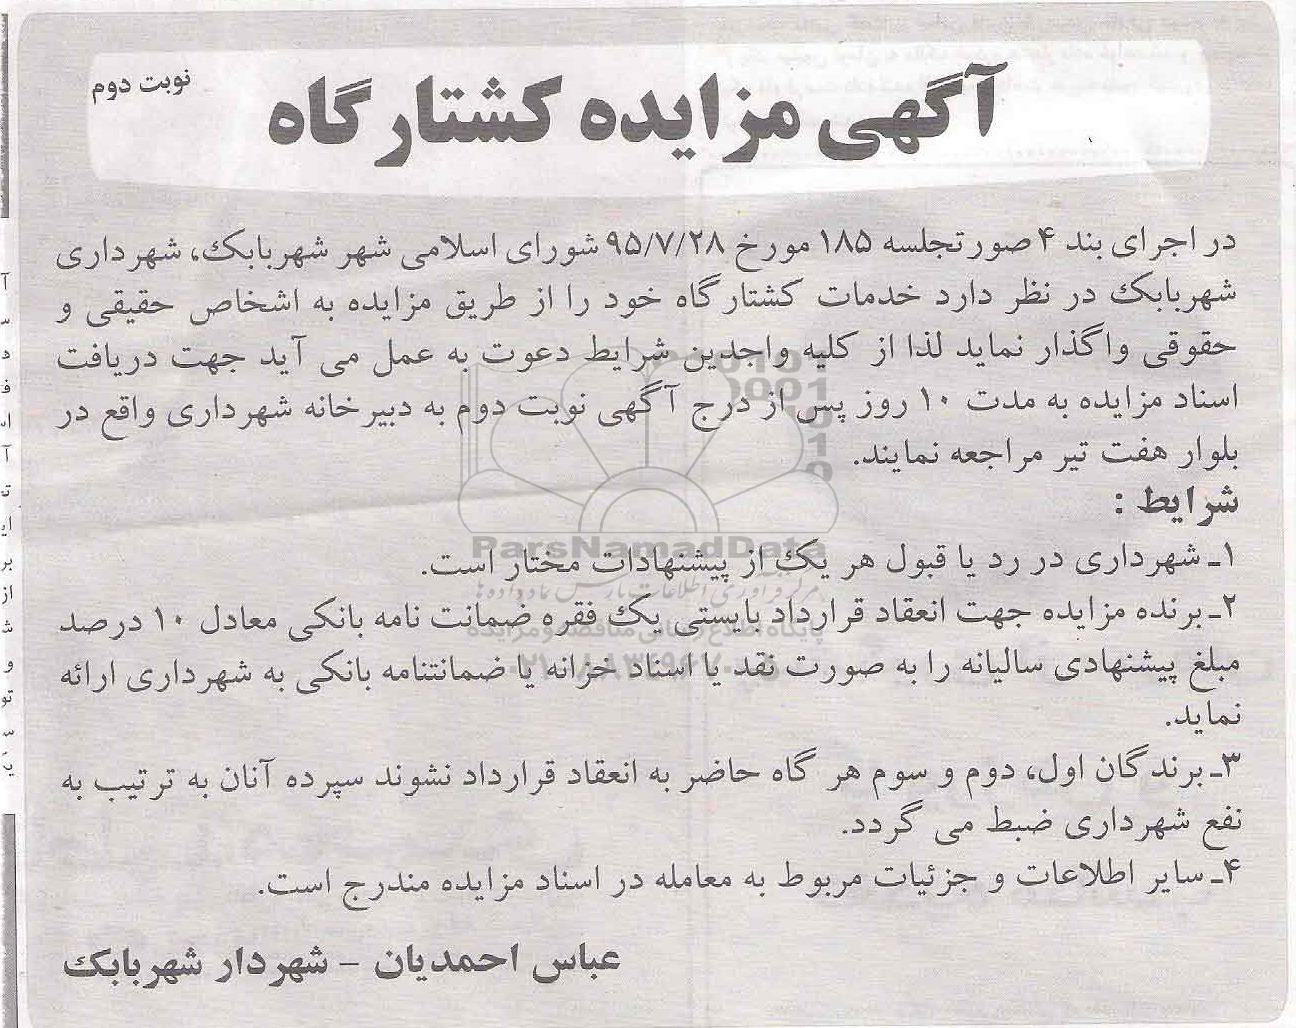 آگهی مزایده کشتارگاه
نوبت دوم
در اجرای بند ۴ صورتجلسه ۱۸۵ مورخ ۹۵/۷/۲۸ شورای اسلامی شهر شهربابک، شهرداری
شهربابک در نظر دارد خدمات کشتارگاه خود را از طریق مزایده به اشخاص حقیقی و
حقوقی واگذار نماید لذا از کلیه واجدین شرایط دعوت به عمل می آید جهت دریافت
اسناد مزایده به مدت ۱۰ روز پس از درج آگهی نوبت دوم به دبیرخانه شهرداری واقع در
بلوار هفت تیر مراجعه نمایند.
شرایط :
۱ـ شهرداری در رد یا قبول هر یک از پیشنهادات مختار است.
ParsNamadData
۲ـ برنده مزایده جهت انعقاد قرارداد بایستی یک فقره ضمانت نامه بانکی معادل ۱۰ درصد
مبلغ پیشنهادی سالیانه را به صورت نقد یا اسناد خزانه یا ضمانتنامه بانکی به شهرداری ارائه
نماید.
۳ـ برندگان اول، دوم و سوم هر گاه حاضر به انعقاد قرارداد نشوند سپرده آنان به ترتیب به
نفع شهرداری ضبط می گردد.
۴ـ سایر اطلاعات و جزئیات مربوط به معامله در اسناد مزایده مندرج است.
عباس احمدیان – شهردار شهربابک